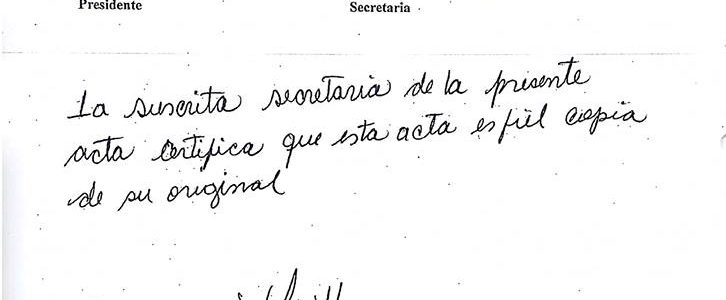 Presidente Secretaria
La suscrita secretaria de la presente
acta certifica que esta acta es fiel copia
de su original